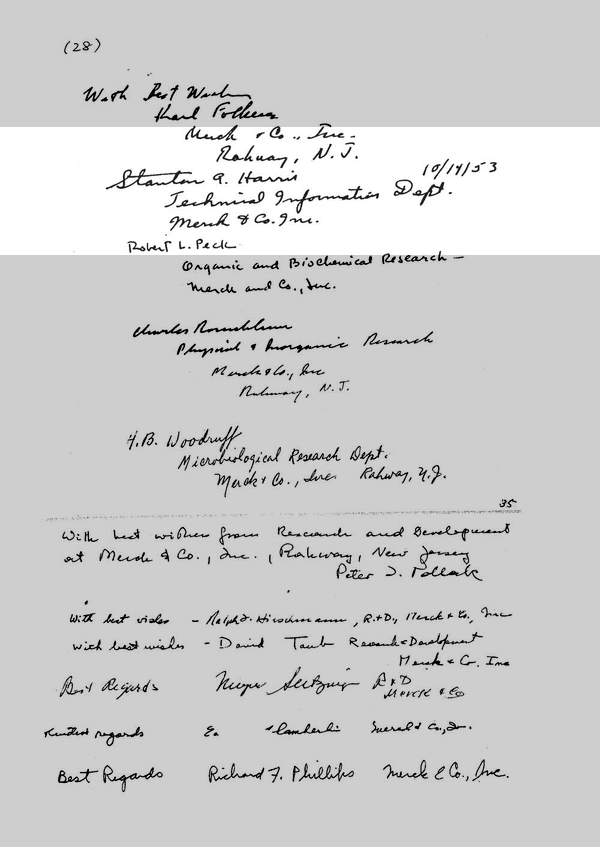 (28)
With Best Wishes
Karl Folkers
Merck & Co., Inc.
Rahway, N.J.
10/14/53
Stanton A. Harris
Technical Information Dept.
Merck & Co. Inc.
Robert L. Peck
Organic and Biochemical Research —
Merck and Co., Inc.
Charles Rosenblum
Physical & Inorganic Research
Merck & Co., Inc
Rahway, N.J.
H.B. Woodruff
Microbiological Research Dept.
Merck & Co., Inc. Rahway, N.J.
35
With best wishes from Research and Development
at Merck & Co., Inc., Rahway, New Jersey
Peter I. Pollak
With best wishes - Ralph F. Hirschmann, R.+D., Merck & Co., Inc
With best wishes - David Taub Research & Development
Merck & Co. Inc
Best Regards Meyer R+D
Merck & Co
Kindest regards & Co., In.
Best Regards Richard F. Phillips Merck & Co., Inc.